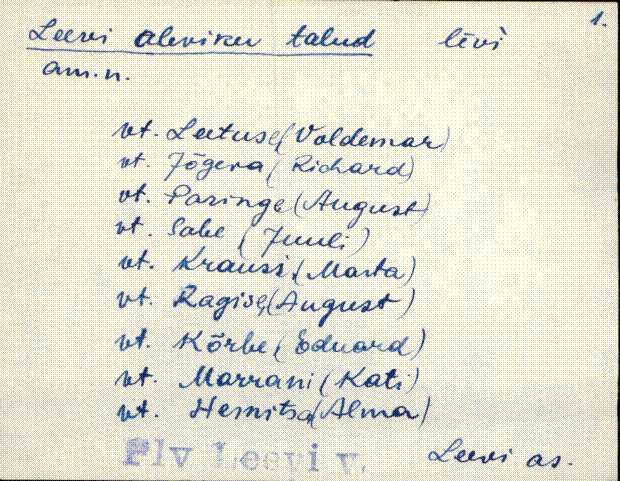 1.
Leevi aleviku talud lēvi
am.n.
vt. Leetuse (Voldemar)
vt. Jõgeva (Richard)
vt. Paringe (August)
vt. Sabe (Juuli)
vt. Krausi (Marta)
vt. Ragise (August)
vt. Kõrbe (Eduard)
vt. Marrani (Kati)
vt. (Alma)
Plv Leevi v. Leevi as.